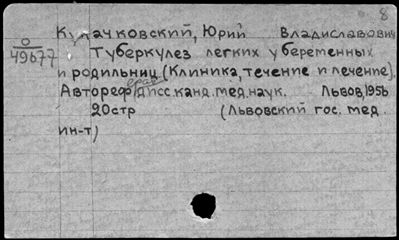 8
Кулачковский, Юрий Владиславович
0
49677
Туберкулез легких у беременных
и родильниц (Клиника, течение и лечение).
Автореферат дисс. канд. мед. наук. Львов, 1956
20стр (Львовский гос. мед.
ин-т)